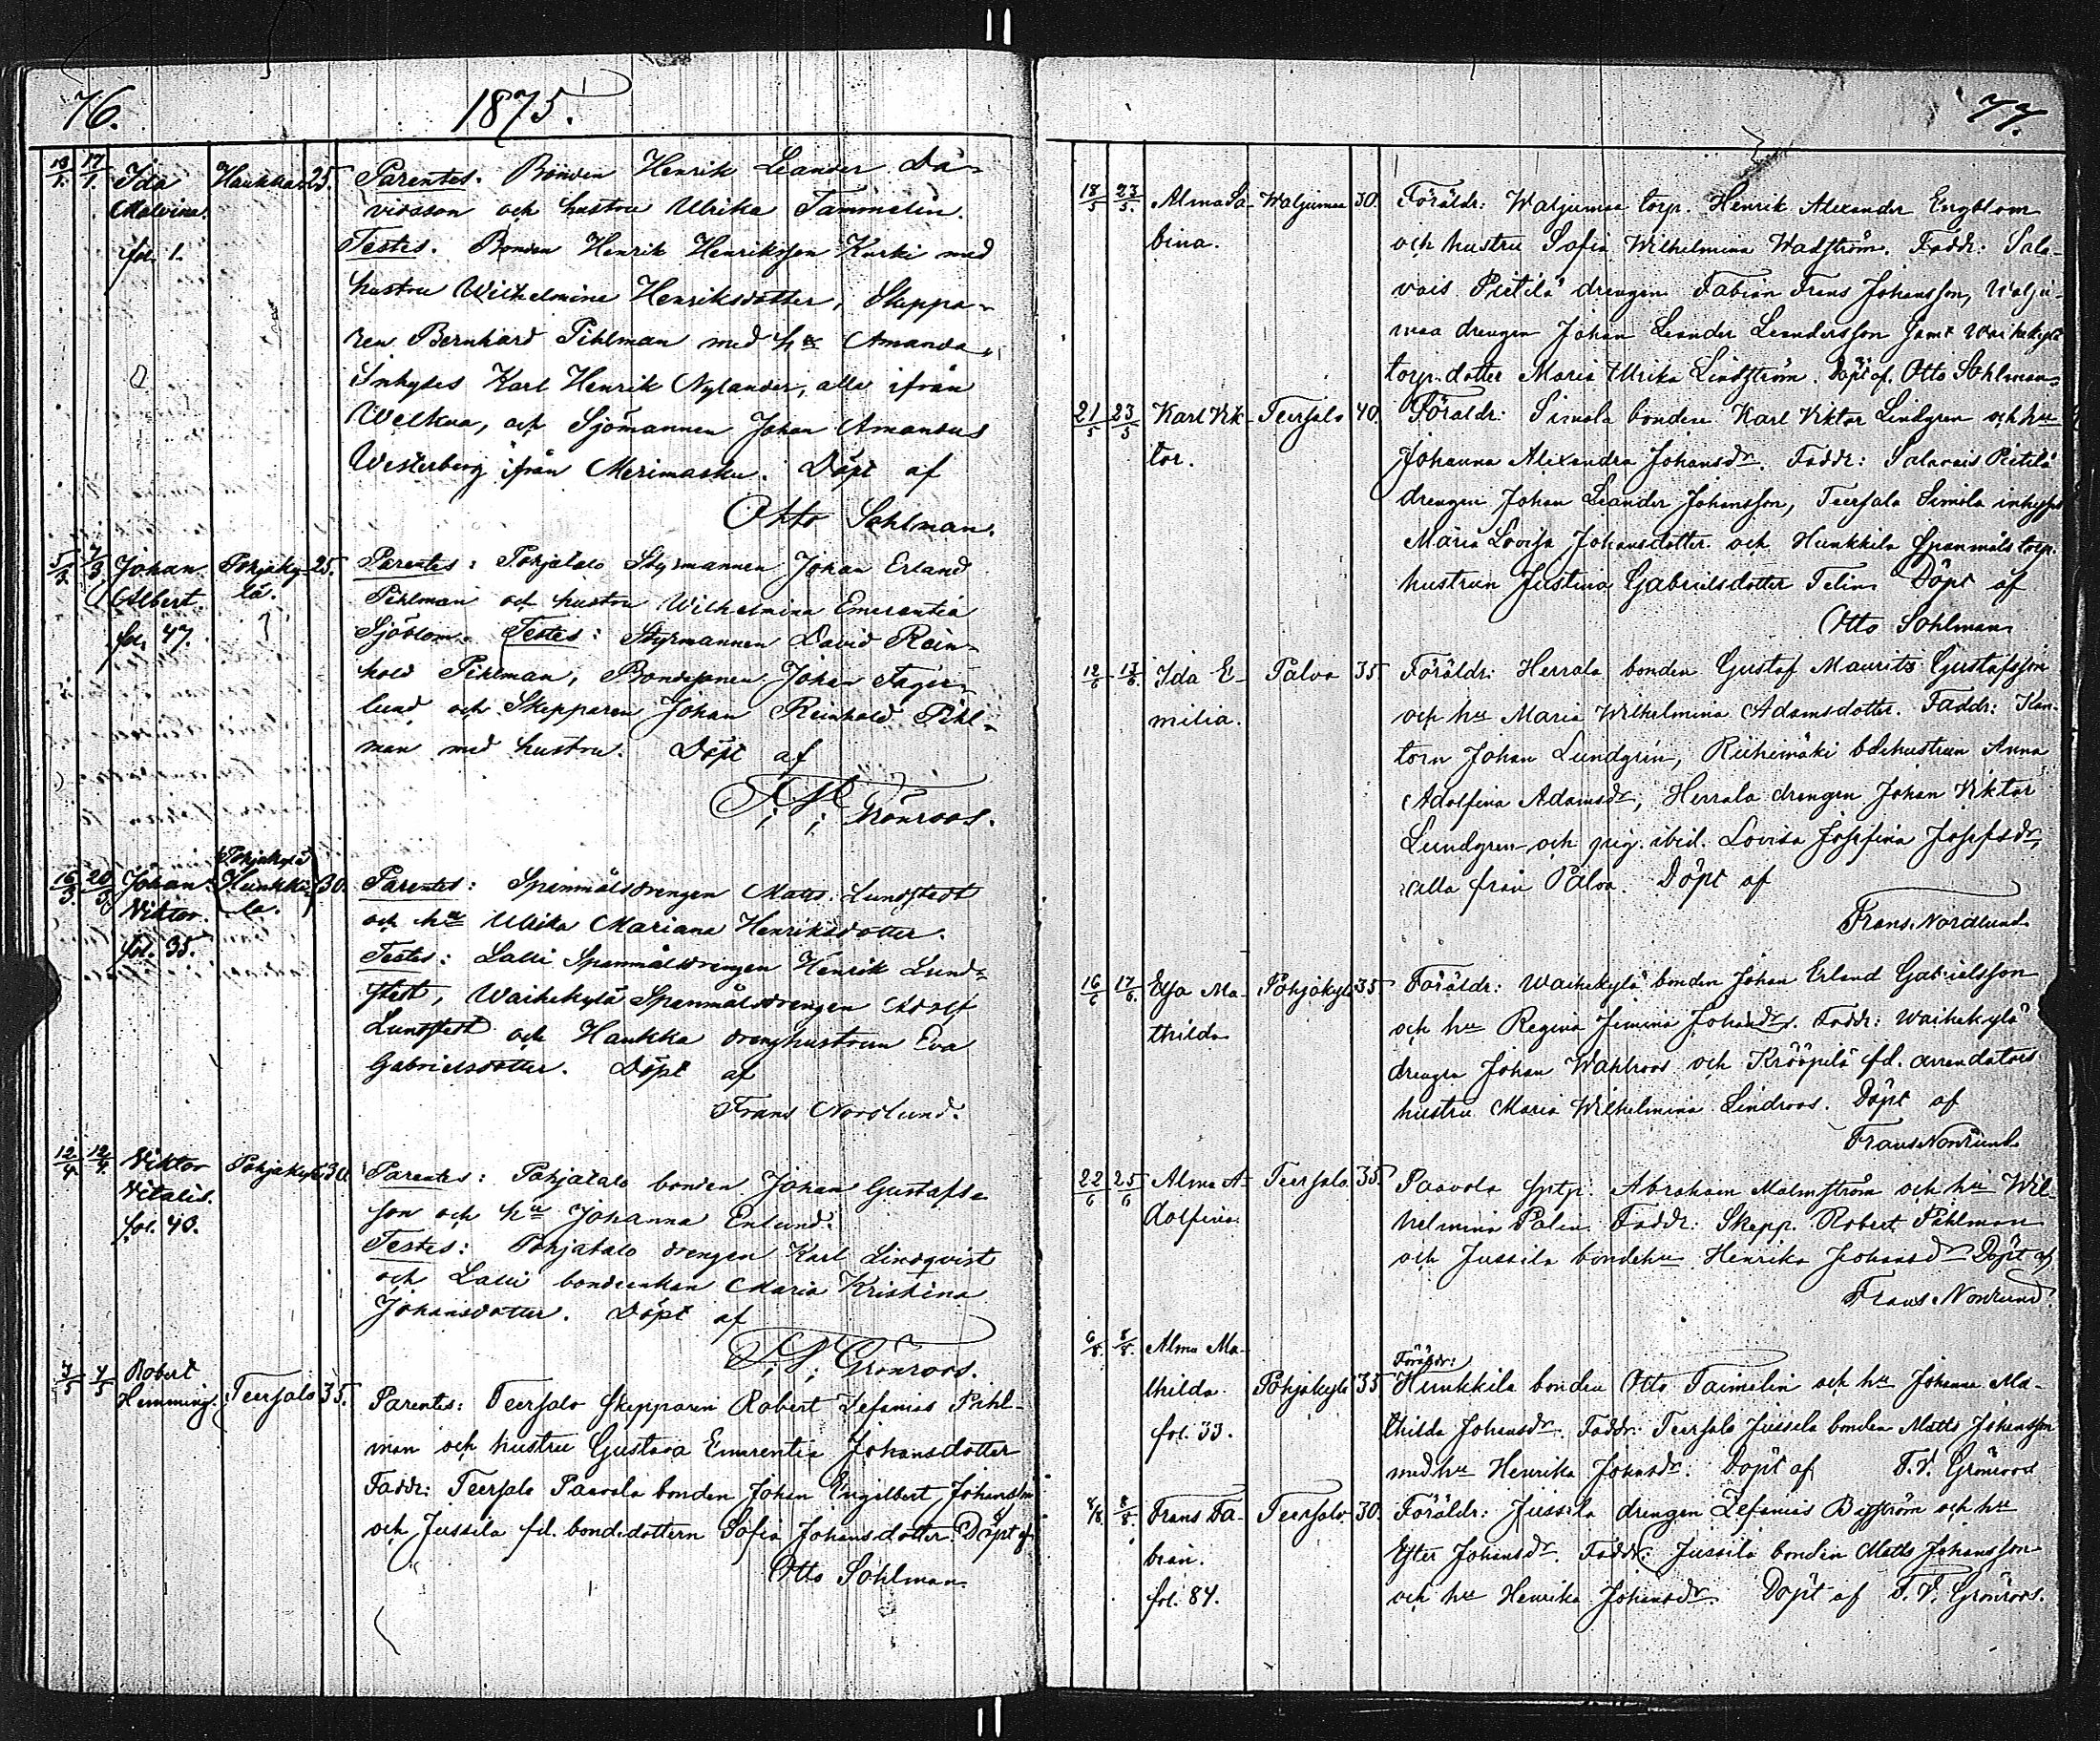 76.
1875.
13/1. 17/1. Ida Haukka 25. Parentes. Bonden Henrik Leander Da-
Malvina. vidsson och hustru Ulrika Tammelin.
fol. 1. Testes. Bonden Henrik Henriksson Kurki med
hustru Wilhelmina Henriksdotter, Skeppa-
ren Bernhard Pihlman med hu Amanda,
Inhyses Karl Henrik Nylander, alla ifrån
Welkua, och Sjömannen Johan Amandus
Westerberg ifrån Merimasku. Döpt af
Otto Sohlman.
5/3. 7/3. Johan Pohjaky- 25. Parentes: Pohjatalo Styrmannen Johan Erland
Albert lä. Pihlman och hustru Wilhelmina Emerentia
fol. 47. Sjöblom. Testes: Styrmannen David Rein-
hold Pihlman, Bondesonen Johan Fager-
lund och Skepparen Johan Reinhold Pihl-
man med hustru. Döpt af
Grönroos.
Pohjakylä
16/3. 20/3. Johan Hunkki- 30. Parentes: Spanmålsdrengen Matts Lundstedt
Viktor. la. och hu Ulrika Mariana Henriksdotter.
fol. 35. Testes: Lalli Spanmålsdrengen Henrik Lund-
stedt, Waihekylä Spanmålsdrengen Adolf
Lundstedt och Haukka drenghustrun Eva
Gabrielsdotter. Döpt af
Frans Nordlund.
12/4. 12/4. Viktor Pohjakylä 30. Parentes: Pohjatalo bonden Johan Gustafs-
Vitalis. son och hu Johanna Enlund.
fol. 40. Testes: Pohjatalo drengen Karl Lindqvist
och Lalli bondenkan Maria Kristina
Johansdotter. Döpt af
Grönroos.
3/5 4/5 Robert
Hemming. Teersalo 35. Parentes: Teersalo skepparen Robert Zefanias Pihl-
man och hustru Gustava Emerentia Johansdotter
Faddr: Teersalo Paavola bonden Johan Engelbert Johansson
och Jussila fd. bondedottern Sofia Johansdotter. Döpt af
Otto Sohlman.
77.
18/5 23/5. Alma Sa- Waljumaa 30. Föräldr: Waljumaa torp. Henrik Alexander Engblom
bina. och hustru Sofia Wilhelmina Wadström. Faddr: Sala-
vais Pietilä drengen Fabian Frans Johansson, Walju-
maa drengen Johan Leander Leandersson samt Waihekylä
torp.dotter Maria Ulrika Lindström. Döpt af. Otto Sohlman.
21/5 23/5 Karl Vik- Teersalo 40. Föräldr: Simola bonden Karl Viktor Lindgren och hu
tor. Johanna Alexandra Johansdr. Faddr: Salavais Pietilä
drengen Johan Leander Johansson, Teersala Simola inhyses
Maria Lovisa Johansdotter och Hunkkila Spanmåls torp.
hustrun Justina Gabrielsdotter Telin. Döpt af
Otto Sohlman.
12/6 13/6. Ida E- Palva 35 Föräldr: Herrala bonden Gustaf Maurits Gustafsson
milia. och hu Maria Wilhelmina Adamsdotter. Faddr: Kan-
torn Johan Lundgrén, Riihimäki bdehustrun Anna
Adolfina Adamsdr, Herrala drengen Johan Viktor
Lundgren och pig. ibid. Lovisa Josefina Josefsdr,
alla från Palva. Döpt af
Frans Nordlund.
16/6 17/6. Elsa Ma- Pohjakylä 35 Föräldr: Waihekylä bonden Johan Erland Gabrielsson
thilda och hu Regina Johansdr. Faddr: Waihekylä
drengen Johan Wahlroos och Krööpilä fd. arrendators
hustru Maria Wilhelmina Lindroos. Döpt af
Frans Nordlund.
22/6 25/6 Alma A- Teersalo. 35. Paavola Abraham Malmström och hu Wil-
dolfina. helmina Palin. Faddr: Skepp. Robert Pihlman
och Jussila bondehu Henrika Johansdr Döpt af
Frans Nordlund.
6/8. 8/8. Alma Ma- Föräldr:
thilda. Pohjakylä 35 Hunkkila bonden Otto Taimelin och hu Johanna Ma-
fol. 33. thilda Johansdr. Faddr: Teersalo Jussila bonden Matts Johansson
med hu Henrika Johansdr. Döpt af F.V. Grönroos
8/8. 8/8. Frans Fa- Teersalo 30. Föräldr: Jussila drengen Zefanias och hu
bian. Ester Johansdr. Faddr: Jussila bonden Matts Johansson
fol. 84. och hu Henrika Johansdr. Döpt af F.V. Grönroos.